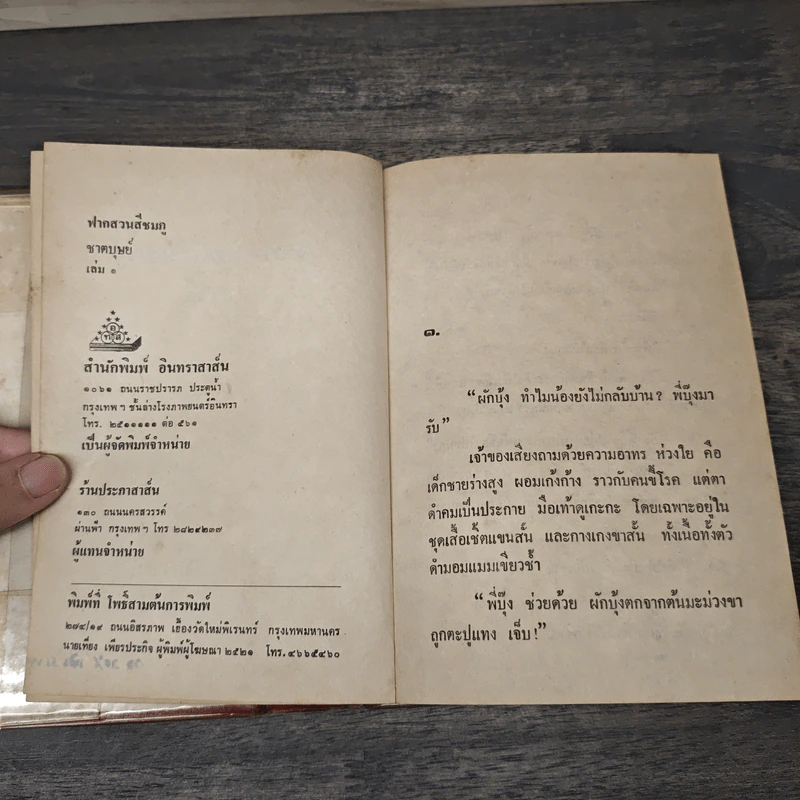 ฟากสวนสีชมภู
ชาตบุษย์
เล่ม ๑
สำนักพิมพ์ อินทราสาส์น
๑๐๖๑ ถนนราชปรารภ ประตูน้ำ
กรุงเทพ ฯ ชั้นล่างโรงภาพยนตร์อินทรา
โทร. ๒๕๑๑๑๑๑ ต่อ ๕๖๑
เป็นผู้จัดพิมพ์จำหน่าย
ร้านประภาสาส์น
๑๓๐ ถนนนครสวรรค์
ผ่านฟ้า กรุงเทพ ฯ โทร ๒๘๒๔๒๓๗
ผู้แทนจำหน่าย
พิมพ์ที่ โพธิ์สามต้นการพิมพ์
๒๗๔/๑๙ ถนนอิสรภาพ เยื้องวัดใหม่พิเรนทร์ กรุงเทพมหานคร
นายเที่ยง เพียรประกิจ ผู้พิมพ์ผู้โฆษณา ๒๕๒๑ โทร. ๔๖๖๕๔๖๐
๑.
“ผักบุ้ง ทำไมน้องยังไม่กลับบ้าน? พี่บุ๊งมา
รับ”
เจ้าของเสียงถามด้วยความอาทร ห่วงใย คือ
เด็กชายร่างสูง ผอมเก้งก้าง ราวกับคนขี้โรค แต่ตา
ดำคมเป็นประกาย มือเท้าดูเกะกะ โดยเฉพาะอยู่ใน
ชุดเสื้อเชิ้ตแขนสั้น และกางเกงขาสั้น ทั้งเนื้อทั้งตัว
ดำมอมแมมเขียวช้ำ
“พี่บุ๊ง ช่วยด้วย ผักบุ้งตกจากต้นมะม่วงขา
ถูกตะปูแทง เจ็บ!”